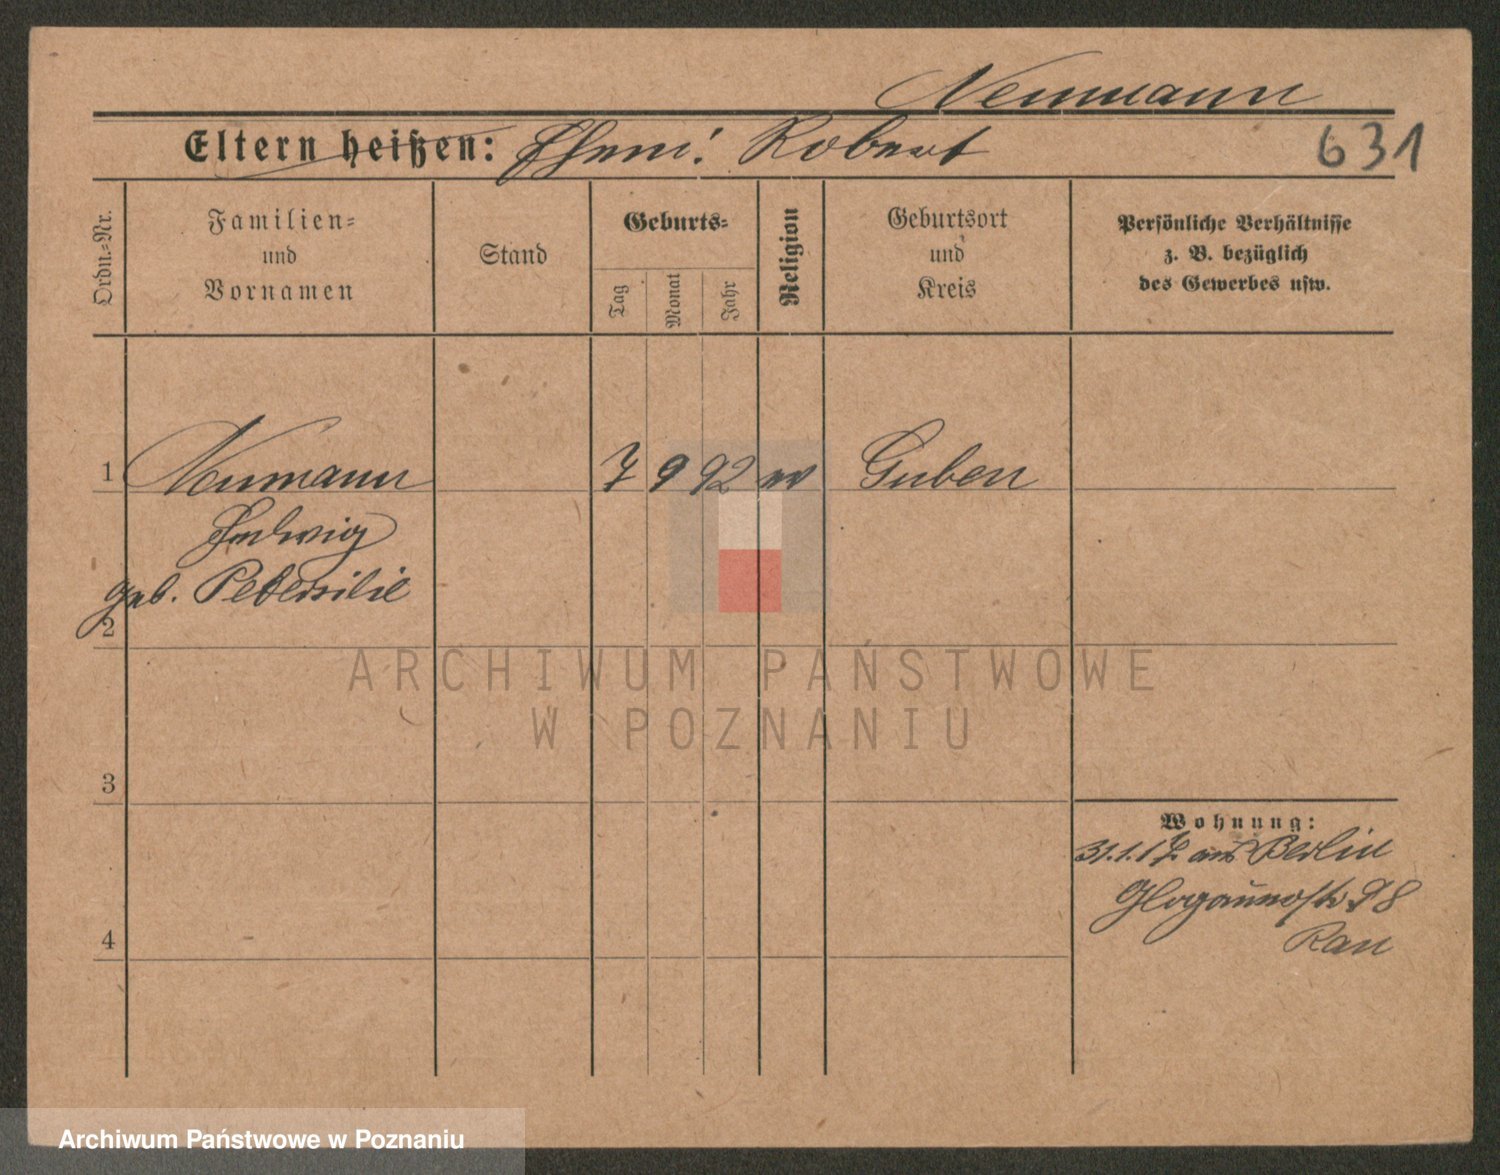 Neumann
Eltern heißen: Ehem: Robert
631
Ordn.=Nr.
Familien=
und
Vornamen
Stand
Geburts=
Tag
Monat
Jahr
Religion
Geburtsort
und
Kreis
Persönliche Verhältnisse
z. B. bezüglich
des Gewerbes usw.
1 Neumann 7 9 92 ev Guben
Hedwig
geb. Petersilie
2
ARCHIWUM PAŃSTWOWE
W POZNANIU
3
Wohnung:
31.1.17 aus Berlin
Glogauerstr 98
4
Rau
Archiwum Państwowe w Poznaniu